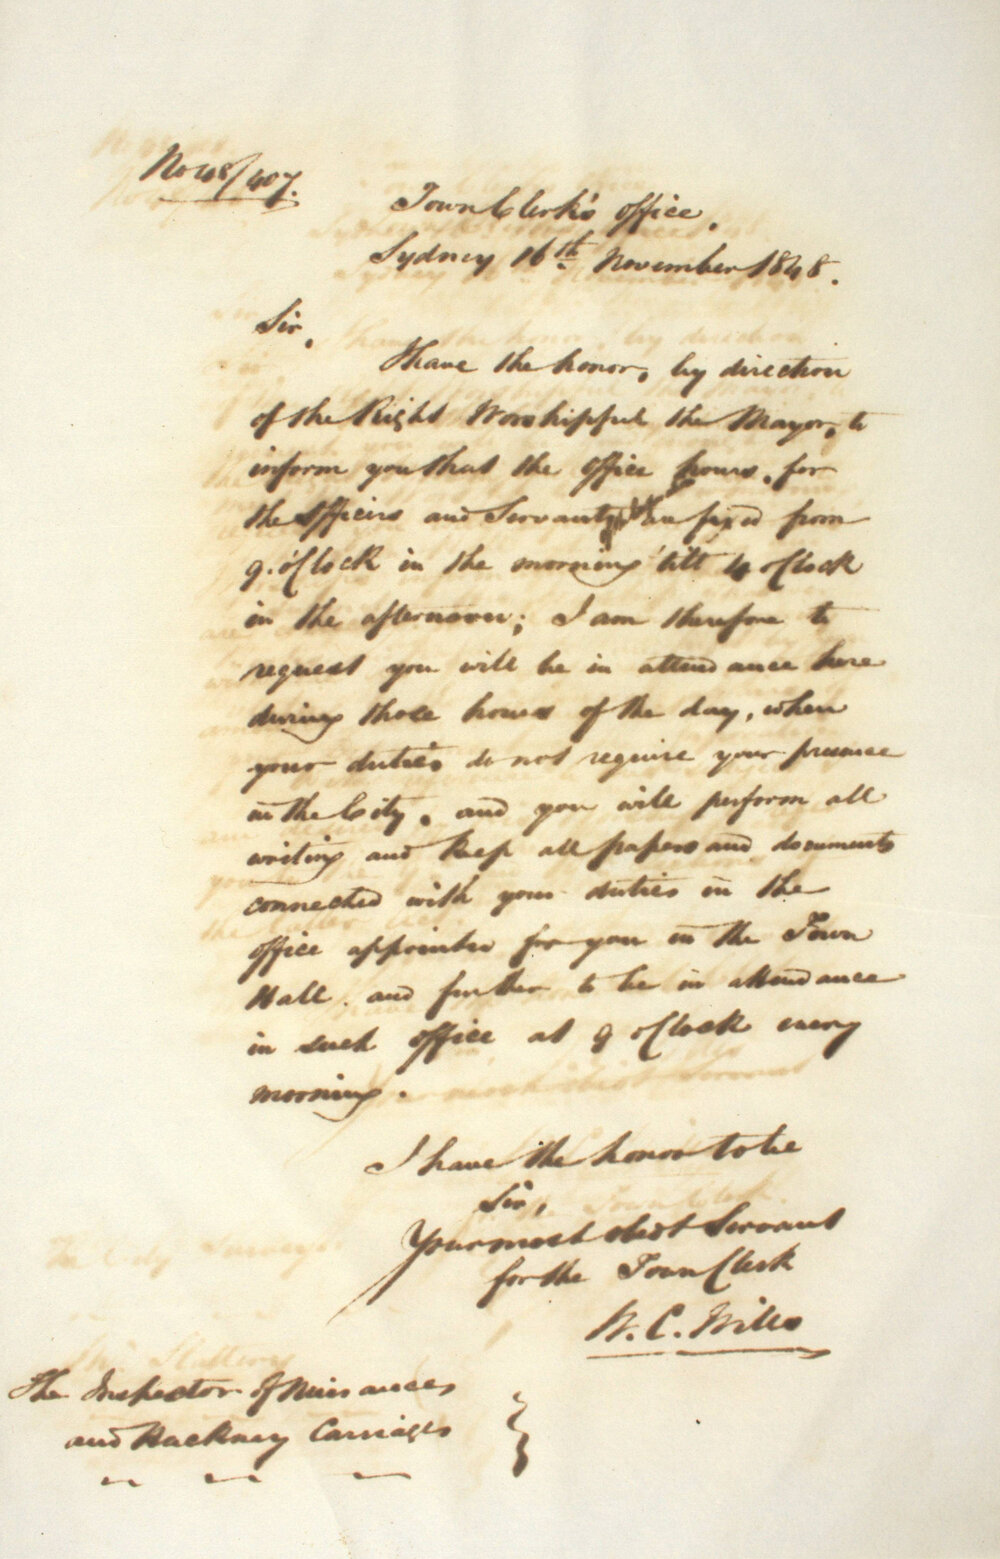 No 48/407.
Town Clerk's Office,
Sydney 16th November 1848.
Sir,
I have the honor, by direction
of the Right Worshipful the Mayor, to
inform you that the Office hours, for
the Officers and Servants are fixed from
9. o'Clock in the morning 'till 4 oClock
in the afternoon; I am therefore to
request you will be in attendance here
during those hours of the day, when
your duties do not require your presence
in the City, and you will perform all
writing and keep all papers and documents
connected with your duties in the
Office appointed for you in the Town
Hall. and further to be in attendance
in such Office at 9 oClock every
morning.
I have the honor to be
Sir,
Your most obedt Servant
for the Town Clerk
W. C. Wills
The Inspector of Nuisances
and Hackney Carriages